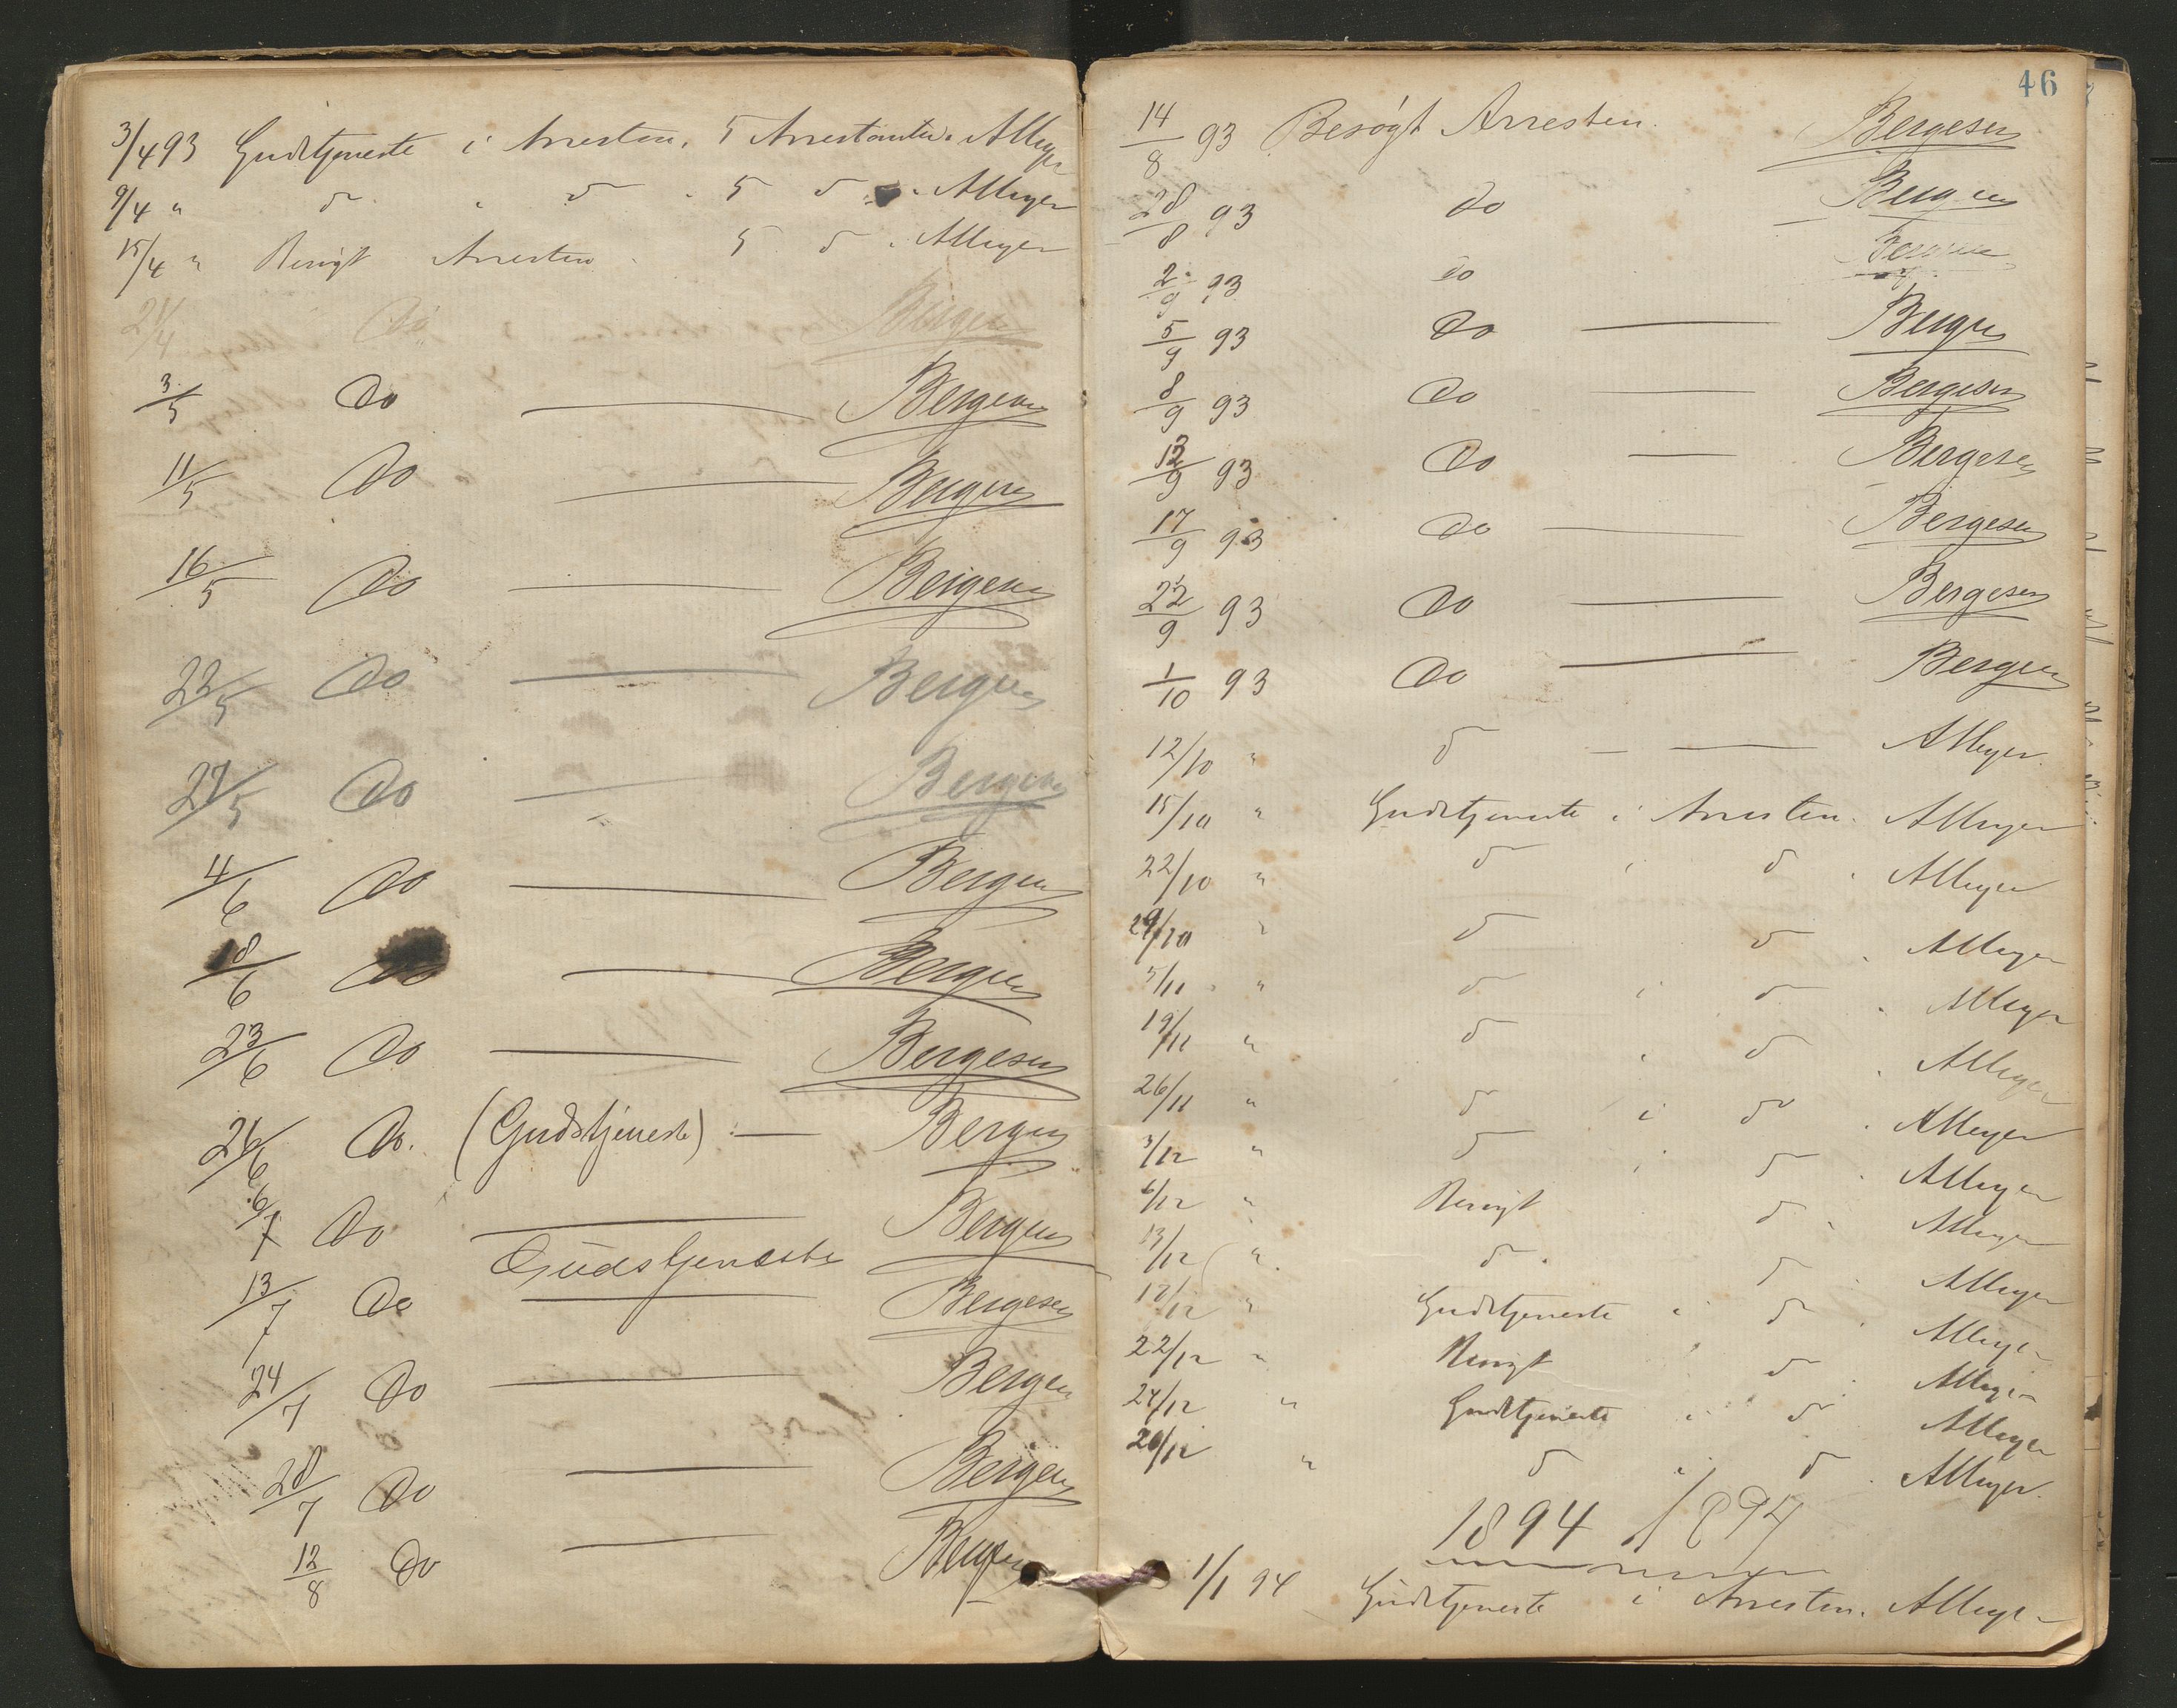 3/4 93 Gudstjeneste i Arresten. 5 Arrestanter. AMeyer
9/4 " do " do . 5 do . AMeyer
15/4 " Besøgt Arresten . 5 do . AMeyer
24/4 Do Bergesen
3/5 Do — Bergesen
11/5 Do — Bergesen
16/5 Do — Bergesen
22/5 Do — Bergesen
27/5 Do — Bergesen
4/6 Do — Bergesen
8/6 Do — Bergesen
23/6 Do — Bergesen
26/6 Do. (Gudstjeneste) — Bergesen
6/7 Do — Bergesen
13/7 Do Gudstjeneste Bergesen
24/7 Do — Bergesen
28/7 Do — Bergesen
12/8 Do — Bergesen
46
14/8 93 Besøgt Arresten. Bergesen
28/8 93 Do — Bergesen
2/9 93 Do
5/9 93 Do — Bergesen
8/9 93 Do — Bergesen
12/9 93 Do — Bergesen
17/9 93 Do — Bergesen
22/9 93 Do — Bergesen
1/10 93 Do — Bergesen
12/10 " do — — AMeyer.
15/10 " Gudstjeneste i Arresten. AMeyer
22/10 " do i do . AMeyer
29/10 " do do . AMeyer
5/11 " do i do . AMeyer
19/11 " do i do . AMeyer
26/11 " do i do . AMeyer
3/12 " do i do . AMeyer
6/12 " Besøgt do . AMeyer
13/12 " do . do . AMeyer
17/12 " Gudstjeneste i do . AMeyer
22/12 " Besøgt do . AMeyer
24/12 " Gudstjeneste i do . AMeyer
26/12 " do i do . AMeyer.
1894 1894
1/1 94 Gudstjeneste i Arresten. AMeyer